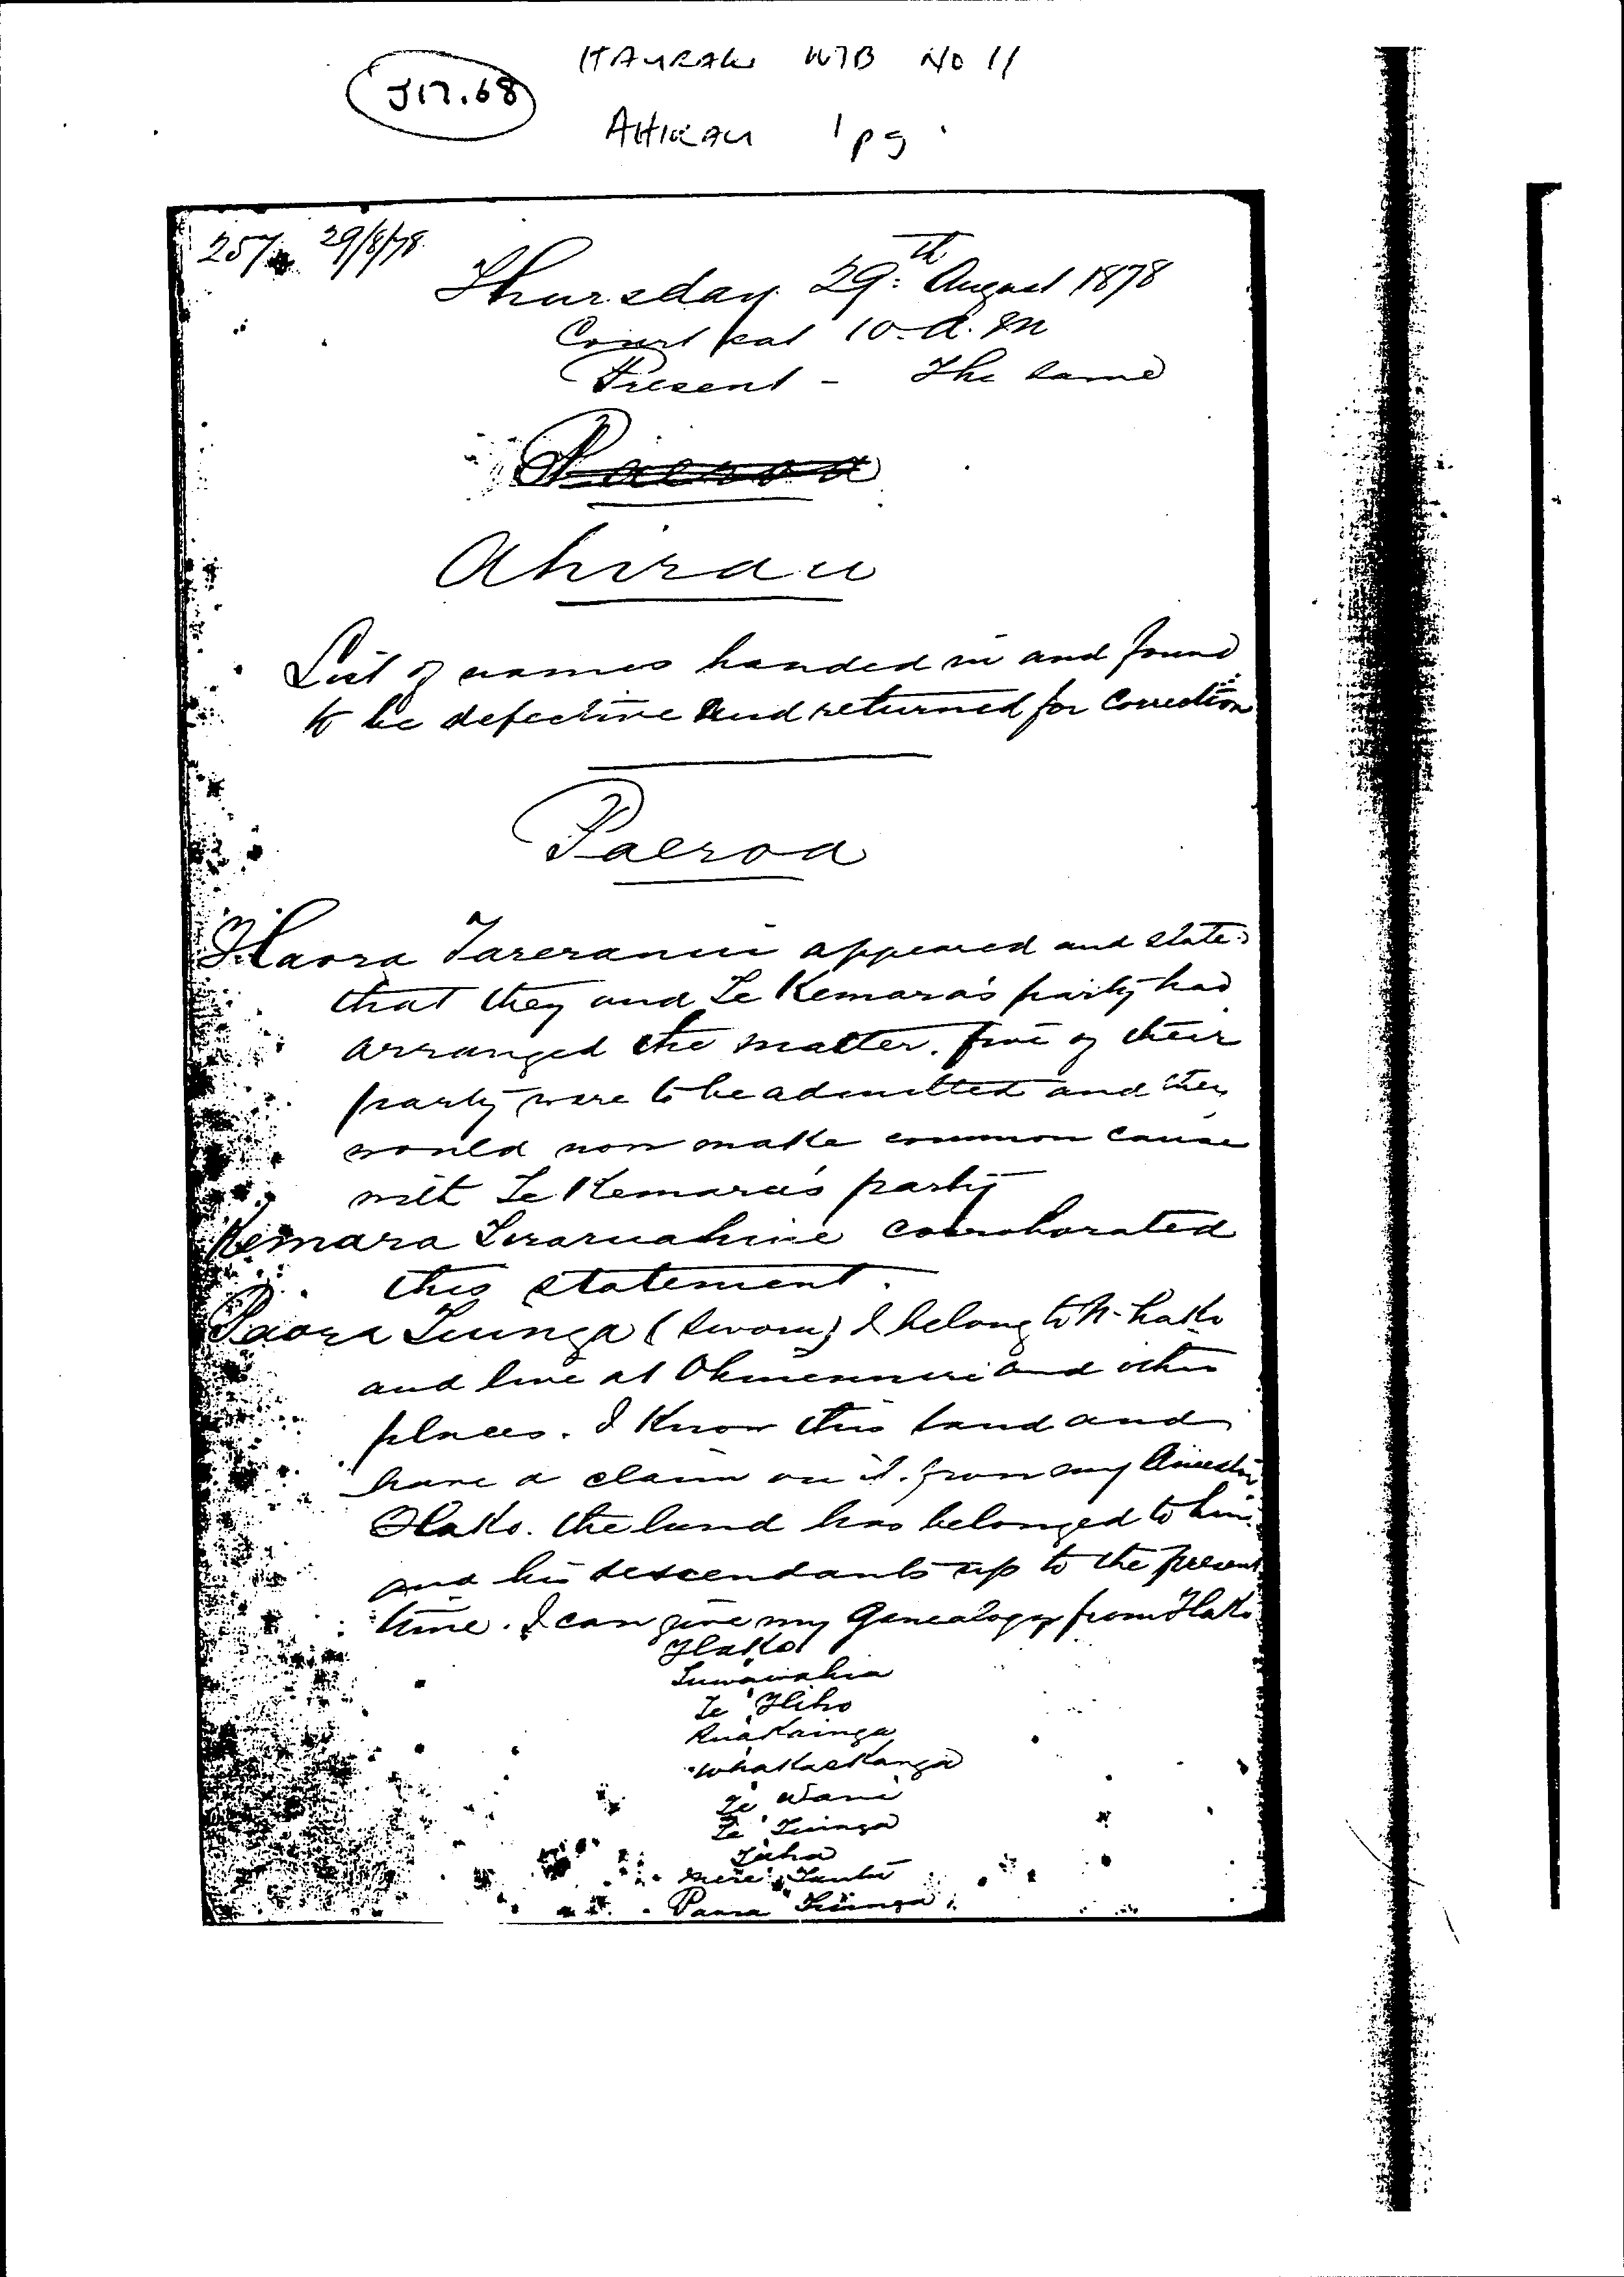 J17.68
HAURAKI MB NO 11
AHIRAU 1 pg
257 29/8/78
Thursday 29th August 1878
Court sat 10 a.m
Present - The same
Paeroa
Ahirau
List of names handed in and found
to be defective and returned for correction
Paeroa
Haora Tareranui appeared and stated
that they and Te Kemara's party had
arranged the matter. five of their
party were to be admitted and they
would now make common cause
with Te Kemara's party
Kemara Tiraruahine corroborated
this statement.
Paora Tiunga (sworn) I belong to N. hako
and live at Ohinemuri and other
places. I know this land and
have a claim on it. from my Ancestor
Hako. the land has belonged to him
and his descendants up to the present
time. I can give my Genealogy from Hako
Hako
Te Hiho
Ruakainga
Whakaekanga
Te Wani
Te Tiunga
Taha
Mere
Paora Tiunga